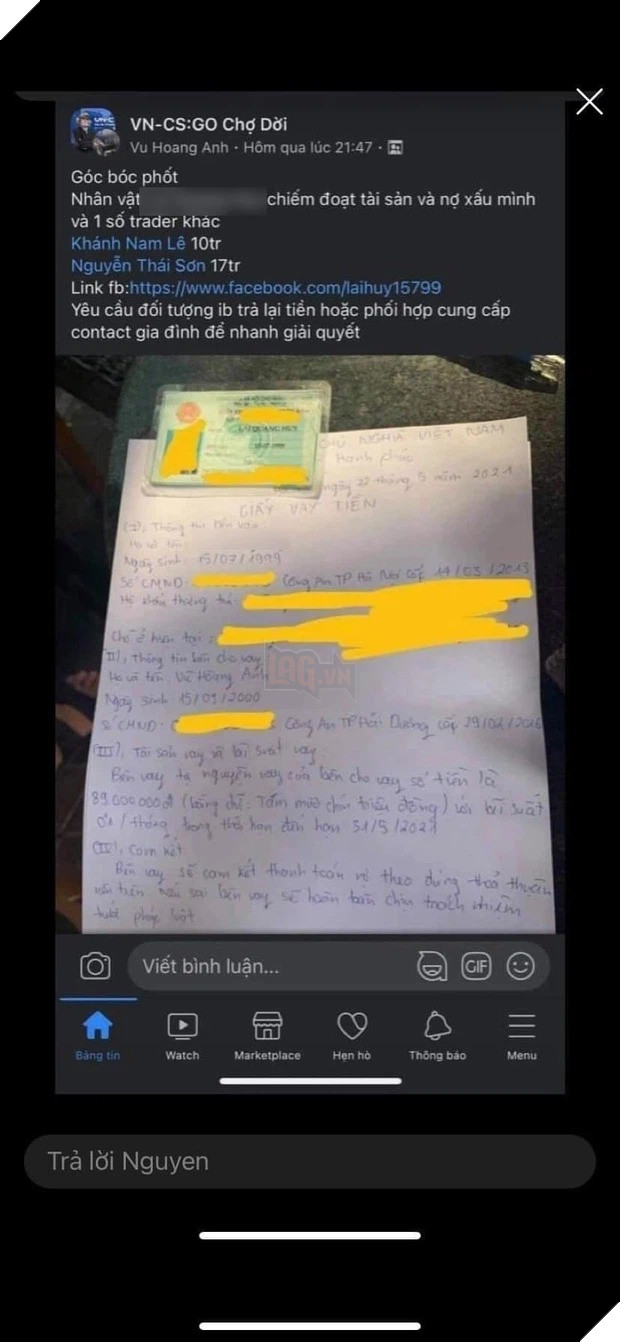 VN-CS:GO Chợ Dời
Vu Hoang Anh · Hôm qua lúc 21:47 ·
Góc bóc phốt
Nhân vật chiếm đoạt tài sản và nợ xấu mình
và 1 số trader khác
Khánh Nam Lê 10tr
Nguyễn Thái Sơn 17tr
Link fb:https://www.facebook.com/laihuy15799
Yêu cầu đối tượng ib trả lại tiền hoặc phối hợp cung cấp
contact gia đình để nhanh giải quyết
LẠI QUANG HUY
CHỦ NGHĨA VIỆT NAM
Hạnh phúc
ngày 22 tháng 5 năm 2021
GIẤY VAY TIỀN
(I), Thông tin bên vay
Họ và tên:
Ngày sinh: 15/07/1999
Số CMND: Công An TP Hà Nội cấp 14/03/2013
Hộ khẩu thường trú:
Chỗ ở hiện tại:
(II), Thông tin bên cho vay
Họ và tên: Vũ Hoàng Anh
LAG.VN
Ngày sinh: 15/09/2000
Số CMND: Công An TP Hải Dương cấp 29/02/2016
(III), Tài sản vay và lãi suất vay
Bên vay tự nguyện vay của bên cho vay số tiền là
89.000.000đ (bằng chữ: Tám mươi chín triệu đồng) với lãi suất
0% / tháng trong thời hạn đến hạn 31/5/2021
(IV), Cam kết
Bên vay sẽ cam kết thanh toán nợ theo đúng thoả thuận
nếu sai bên vay sẽ hoàn toàn chịu trách nhiệm
trước pháp luật
Viết bình luận...
GIF
Bảng tin
Watch
Marketplace
Hẹn hò
Thông báo
Menu
Trả lời Nguyen